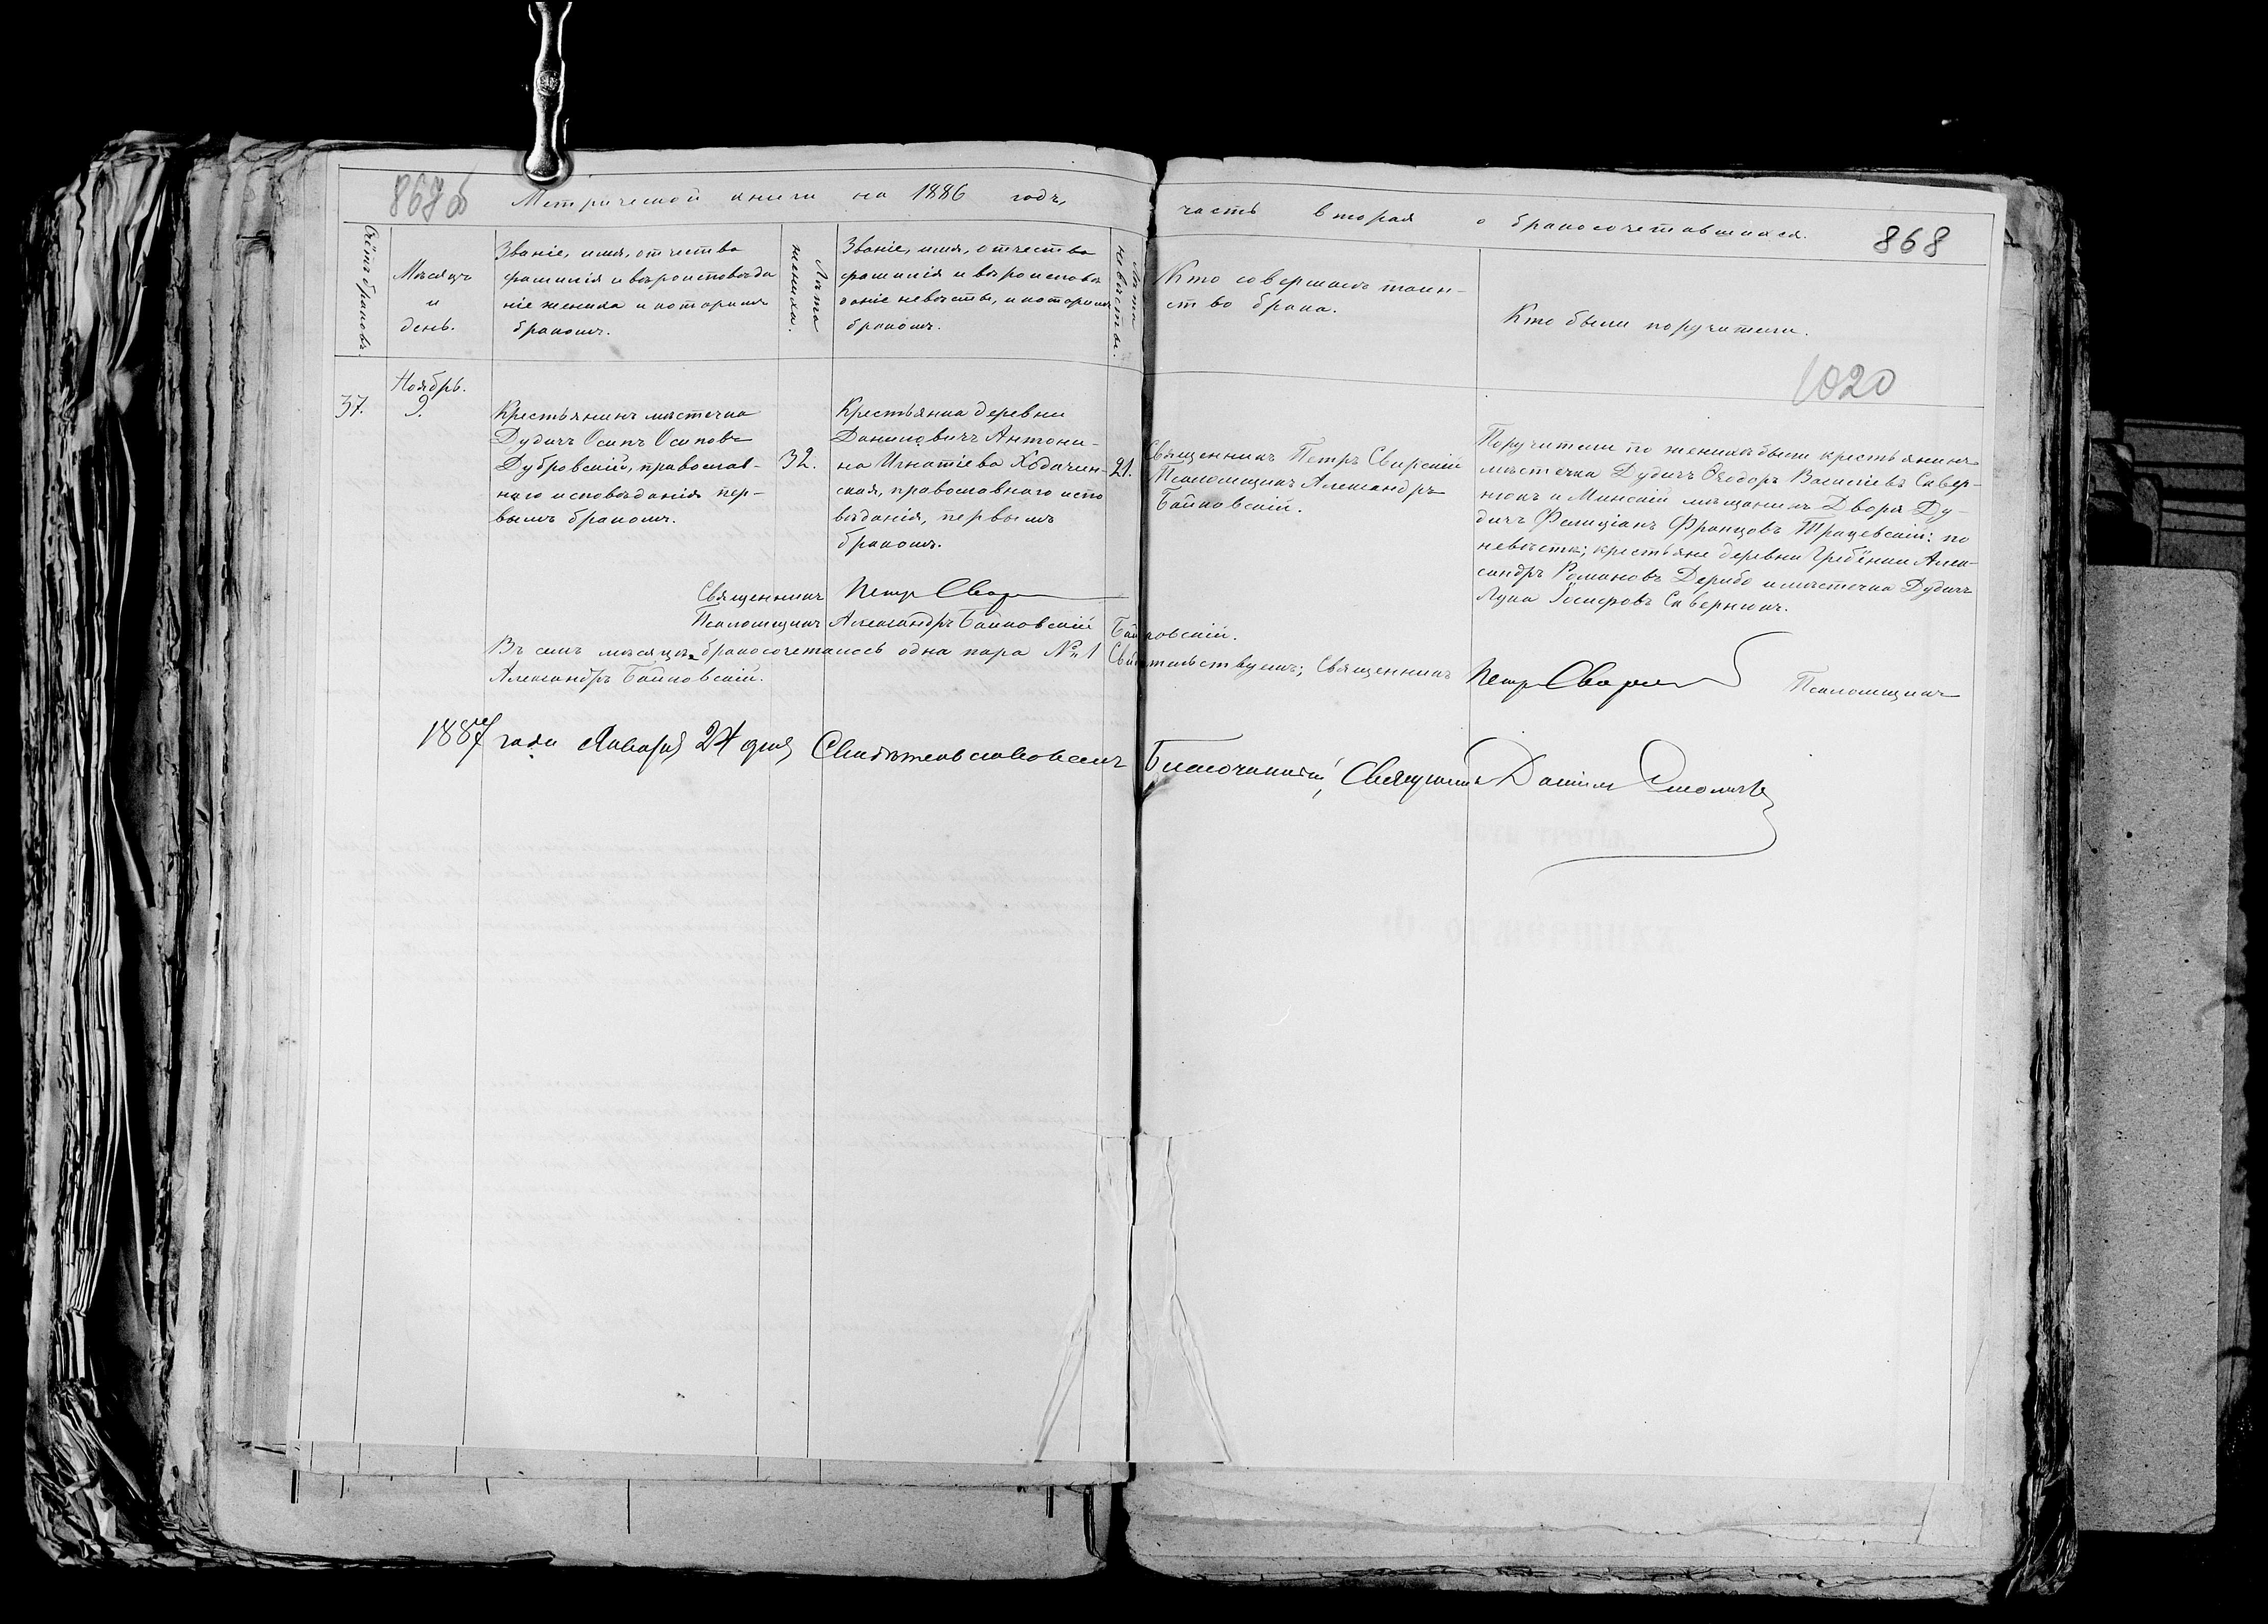 867об
Метрической книги на 1886 годъ,
часть вторая о бракосочетавшихся.
868
Счётъ браковъ.
Мѣсяцъ
и
день.
Званіе, имя, отчество
фамилія и вѣроисповѣда
ніе жениха и которымъ
бракомъ.
Лѣта
жениха.
Званіе, имя, отчество
фамилія и вѣроисповѣ
даніе невѣсты, и которымъ
бракомъ.
Лѣта
невѣсты.
Кто совершалъ таин-
ство брака.
Кто были поручители.
1020
37.
Ноябрь.
9.
Крестьянинъ мѣстечка
Дудичъ Осипъ Осиповъ
Дубровскій, православ-
наго исповѣданія пер-
вымъ бракомъ.
32.
Крестьянка деревни
Даниловичъ Антони-
на Игнатіева Ходачин-
ская, православнаго испо
вѣданія, первымъ
бракомъ.
21.
Священникъ Петръ Свирскій
Псаломщикъ Александръ
Банковскій.
Поручители по женихѣ были крестьянинъ
мѣстечка Дудичъ Ѳеодоръ Васильевъ Савер-
нюкъ и Минскій мѣщанинъ Двора Ду-
дичъ Фелиціанъ Францовъ Трацевскій: по
невѣстѣ; крестьяне деревни Гребёнки Алек-
сандръ Романовъ Дерибо и мѣстечка Дудичъ
Лука Іосифовъ Савернюкъ.
Священникъ Петръ Свир
Псаломщикъ Александръ Банковскій
Банковскій.
Въ семъ мѣсяцѣ бракосочеталась одна пара №1 Свидѣтельствуемъ; Священникъ Петръ Свирскій Псаломщикъ
Александръ Банковскій.
1887 года Января 24 дня Свидѣтельствовалъ Благочинный, Священникъ Даніилъ